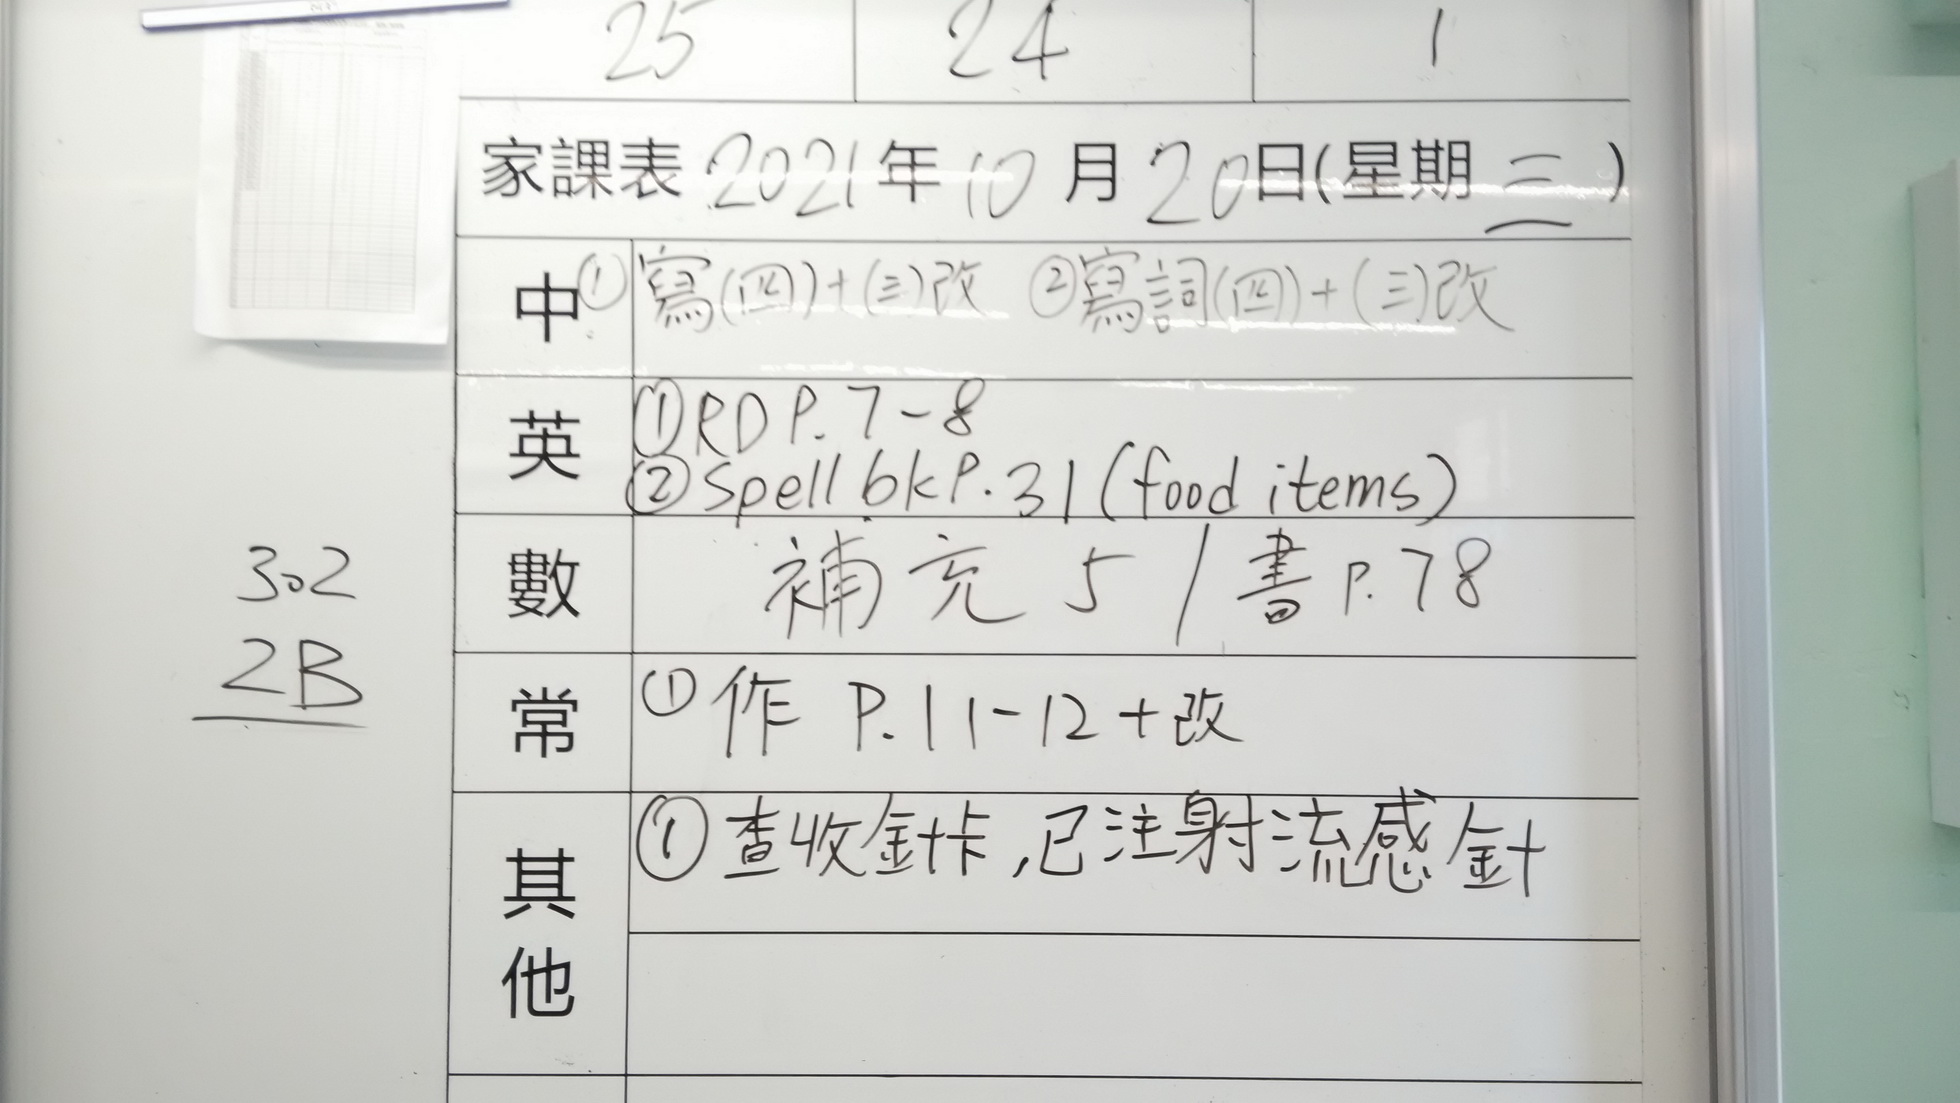 25 24 1
家課表 2021年 10月 20日(星期三)
中 ①寫(四)+(三)改 ②寫詞(四)+(三)改
英 ①RD P.7-8
②Spell bk P.31 (food items)
數 補充 5 / 書 P.78
302
2B
常 ①作 P.11-12+改
其他 ①查收針卡,已注射流感針